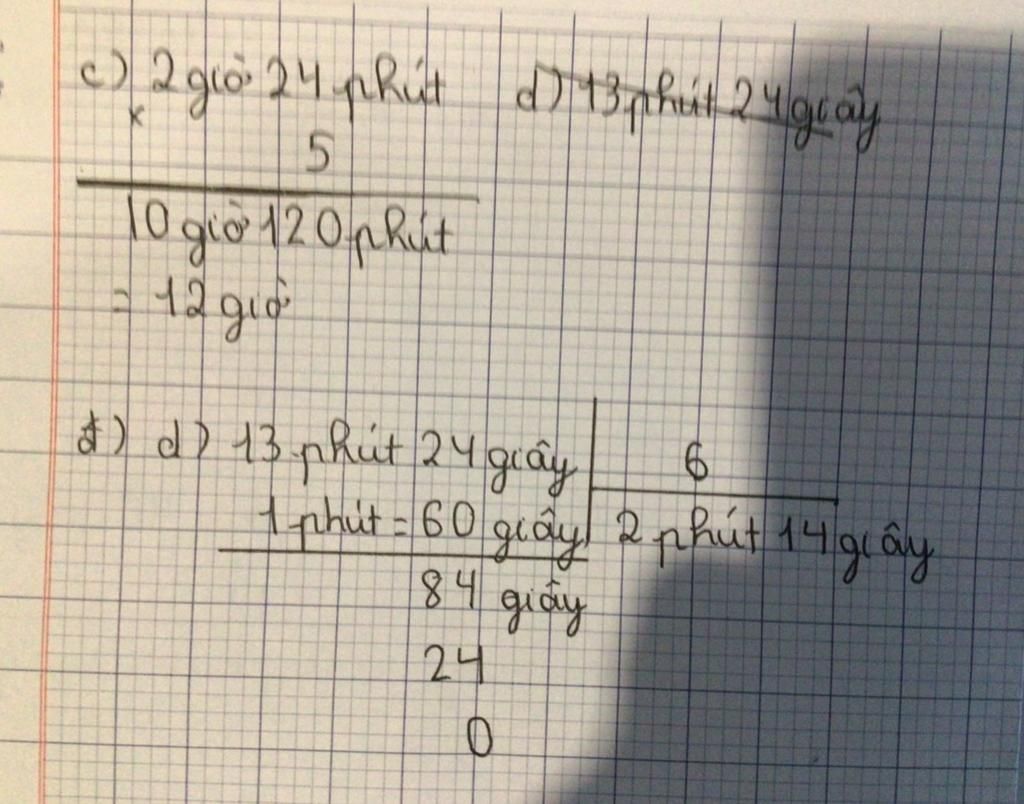 c) 2 giờ 24 phút
x
5
10 giờ 120 phút
= 12 giờ
d) 13 phút 24 giây
d) 13 phút 24 giây 6
1 phút = 60 giây 2 phút 14 giây
84 giây
24
0